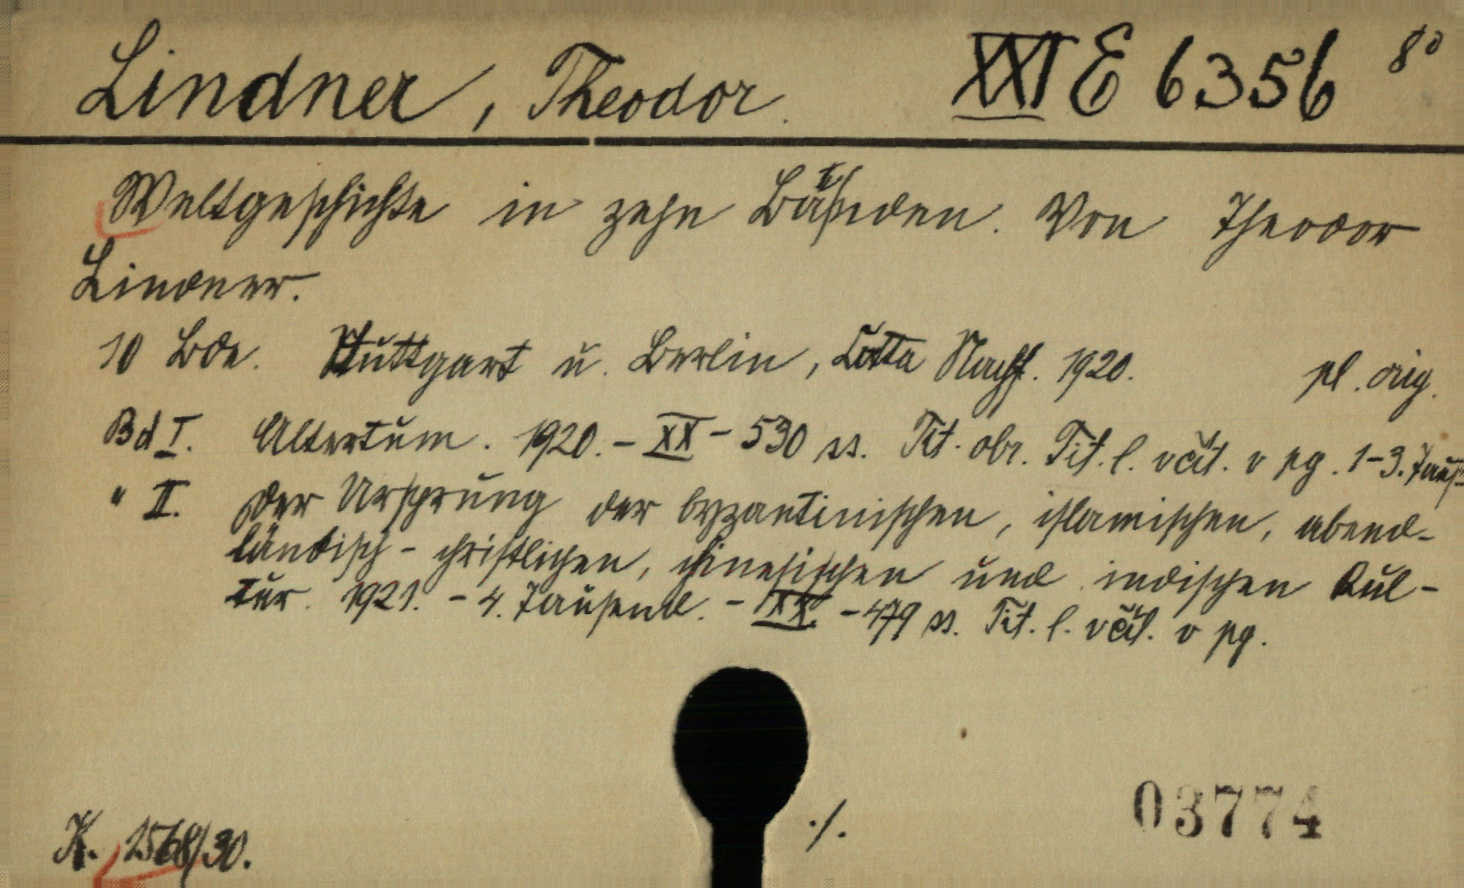 Lindner, Theodor. XXI E 6356 8°
Weltgeschichte in zehn Bänden. Von Theodor
Lindner.
10 Bde. Stuttgart u. Berlin, Cotta Nachf. 1920. pl. orig.
Bd I. Altertum. 1920. - XX - 530 ss. Tit. obr. Tit. l. včít. v pg. 1-3. Taus.
" II. Der Ursprung der byzantinischen, islamischen, abend-
ländisch - christlichen, chinesischen und indischen Kul-
tur. 1921. - 4. Tausend. - XX. - 479 ss. Tit. l. včít. v pg.
03774
K. 2568/30. ./.